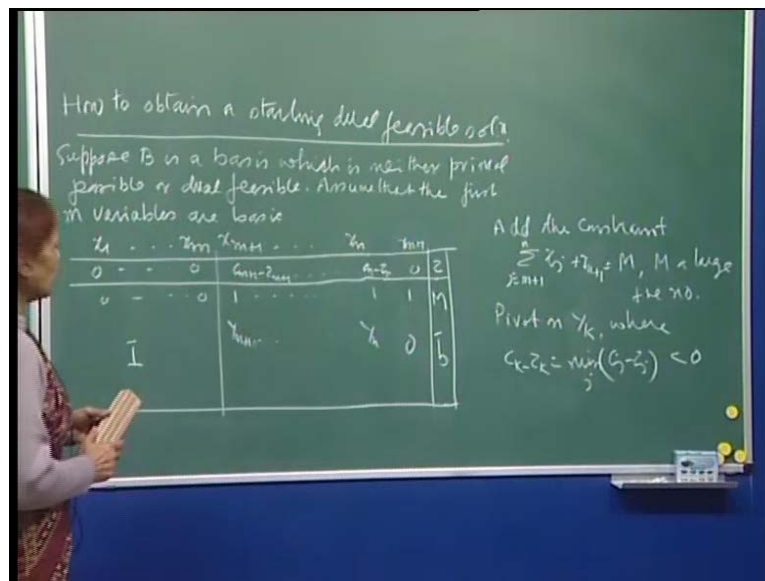 How to obtain a starting dual feasible soln.
Suppose B is a basis which is neither primal
feasible or dual feasible. Assume that the first
m variables are basic
x₁ . . . xₘ xₘ₊₁ . . . . xₙ xₙ₊₁
0 - - 0 cₘ₊₁-zₘ₊₁ . . . . cₙ-zₙ 0 z
0 - . . 0 1 . . . . . 1 1 M
I yₘ₊₁. . . yₙ 0 b̄
Add the constraint
∑ⁿⱼ₌ₘ₊₁ xⱼ + xₙ₊₁ = M, M a large
+ve no.
Pivot on yₖ, where
cₖ-zₖ = min ⱼ (cⱼ-zⱼ) < 0